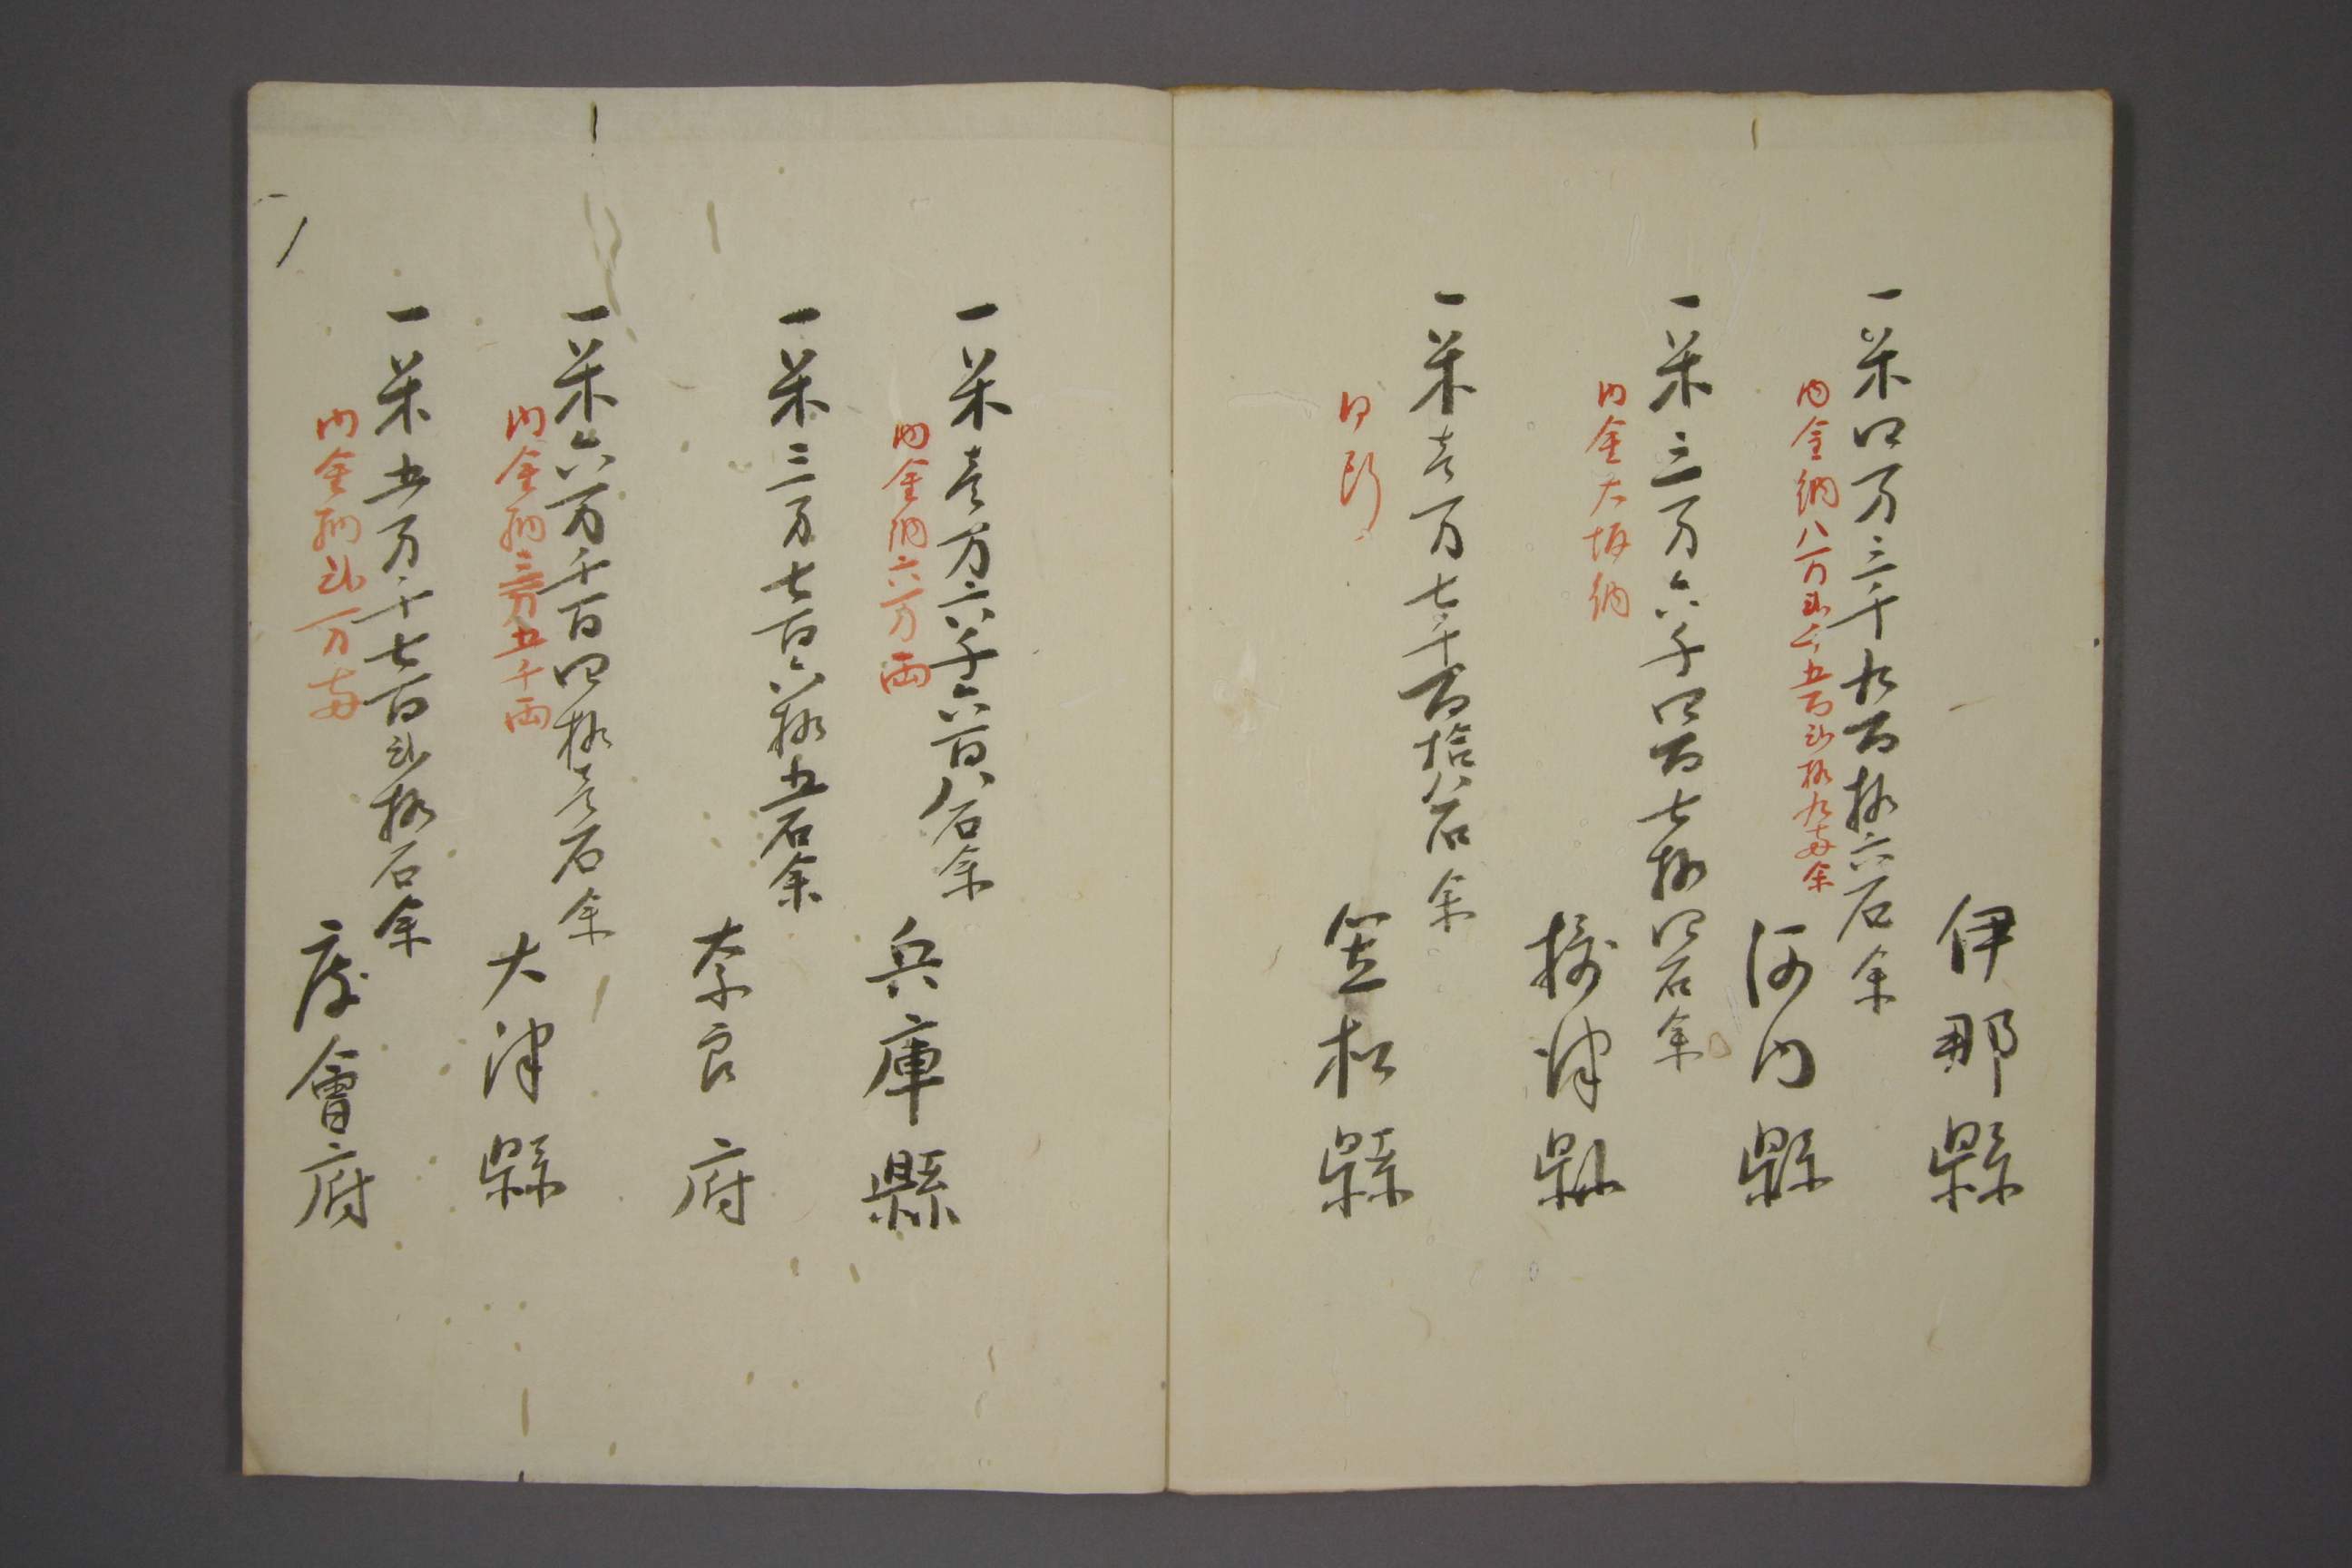 伊那縣
一米四万三千九百拾六石余
内金納八万弐千五百弐拾九両余
河内縣
一米三万六千四百七拾四石余
内金大坂納
摂津縣
一米壱万七千百拾八石余
同断
笠松縣
一米壱万六千六百八石余
内金納六万両
兵庫縣
一米三万七百六拾五石余
奈良府
一米六万千百四拾壱石余
内金納三万五千両
大津縣
一米五万千七百弐拾石余
内金納弐万両
度會府